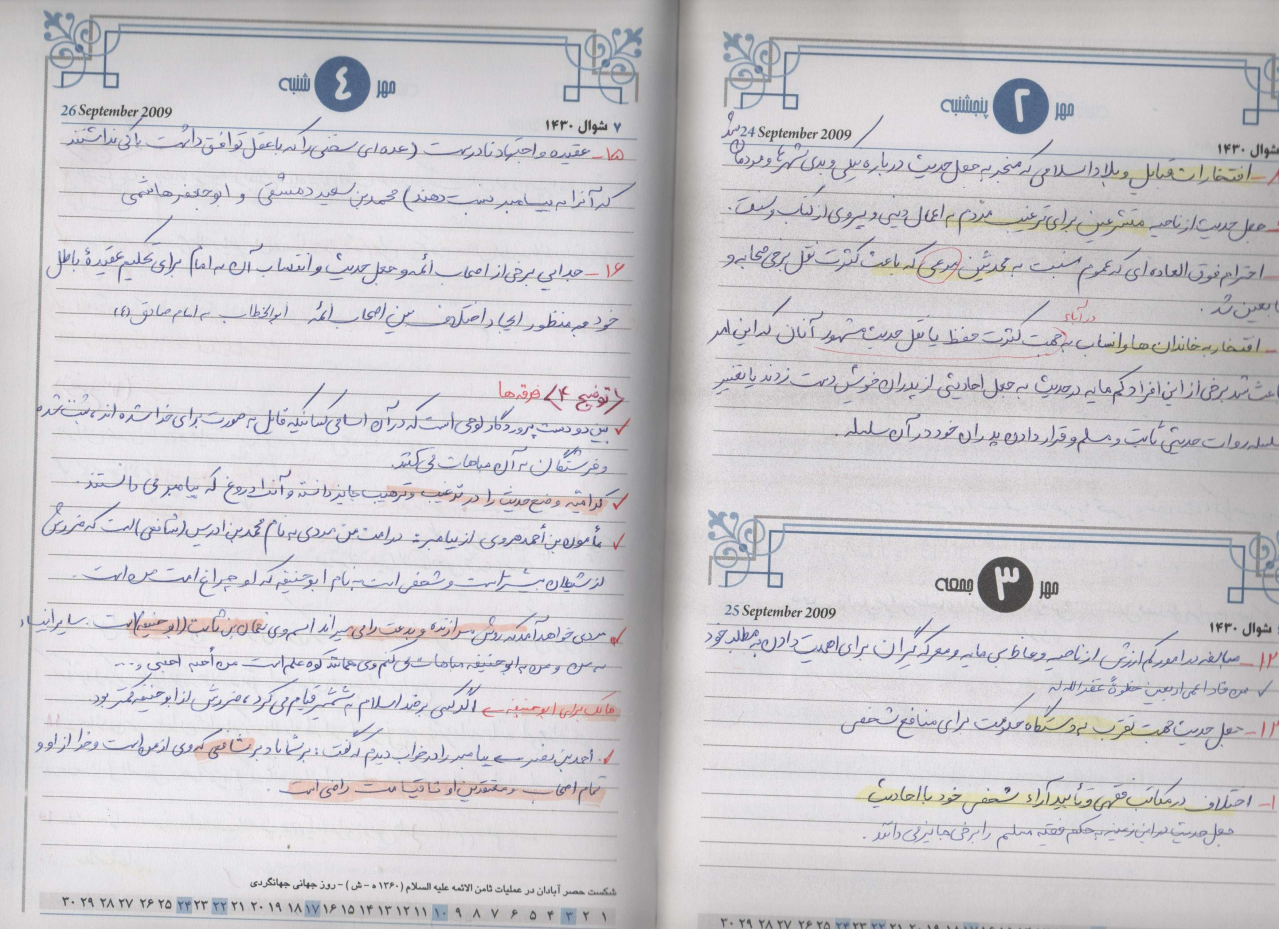 مهر ۲ پنجشنبه
24 September 2009
شوال ۱۴۳۰
افتخارات قبایل و بلاد اسلامی که منجر به جعل حدیث درباره نیکی و بدی شهرها و مردمان
جعل حدیث از ناحیه متشرعین برای ترغیب مردم به اعمال دینی و پیروی از کتاب و سنت.
احترام فوق العاده ای که عموم نسبت به محدثین مدعی که باعث کثرت نقل برخی صحابه و
تابعین شد.
افتخار به خاندان ها و انساب به جهت کثرت حفظ یا نقل حدیث مشهور آنان که این امر
باعث شد برخی از این افراد کم مایه در حدیث به جعل احادیثی از پدران خویش دست زدند یا تغییر
سلسله روات حدیثی ثابت و مسلم و قرار دادن پدران خود در آن سلسله.
مهر ۳ جمعه
25 September 2009
شوال ۱۴۳۰
۱۲- مبالغه در امور کم ارزش از ناحیه وعاظ بی مایه و معرکه گیران برای اهمیت دادن به مطلب خود
✓ من قاد اعمی اربعین خطوة غفر الله له
۱۳- جعل حدیث جهت تقرب به دستگاه حکومت برای منافع شخصی
اختلاف در مکاتب فقهی و تأیید آراء شخصی خود با احادیث
جعل حدیث در این زمینه به حکم فقیه مسلم را برخی جایز می دانند.
مهر ۴ شنبه
26 September 2009
۷ شوال ۱۴۳۰
۱۵- عقیده و اجتهاد نادرست (عده ای سخنی را که با عقل توافق داشت باکی نداشتند
که آنرا به پیامبر نسبت دهند) محمد بن سعید دمشقی و ابوجعفر هاشمی
۱۶- جدایی برخی از اصحاب ائمه و جعل حدیث و انتساب آن به امام برای تحکیم عقیدهٔ باطل
خود و به منظور ایجاد اختلاف بین اصحاب ائمه ابوالخطاب به امام صادق (ع)
توضیح ۴> فرقه ها
✓ بین دو دست پروردگار لوحی است که در آن اسامی کسانیکه قایل به صورت برای خدا شده اند، ثبت شده
و فرشتگان به آن مباهات می کنند.
✓ کرامیه وضع حدیث را در ترغیب و ترهیب جایز دانسته و آنرا دروغ که پیامبر می دانستند.
✓ مأمون بن أحمد هروی از پیامبر: در امت من مردی به نام محمد بن ادریس (شافعی) است که ضررش
از شیطان بیشتر است و شخصی است به نام ابوحنیفه که او چراغ امت من است.
✓ مردی خواهد آمد که روش مرا زنده و بدعت را می میراند اسم وی نعمان بن ثابت (ابوحنیفه) است. سایر انبیاء
به من و من به ابوحنیفه مباهات می کنم وی همانند کوه علم است من أحبه احبنی و...
مالک برای ابوحنیفه ← اگر کسی بر ضد اسلام به شمشیر قیام می کرد، ضررش از ابوحنیفه کمتر بود
✓ أحمد بن نصر ← پیامبر را در خواب دیدم که گفت: بر شما باد بر شافعی که وی از من است و خدا از او و
تمام اصحاب و معتقدین او تا قیامت راضی است.
شکست حصر آبادان در عملیات ثامن الائمه علیه السلام (۱۳۶۰ ه - ش) - روز جهانی جهانگردی
۱ ۲ ۳ ۴ ۵ ۶ ۷ ۸ ۹ ۱۰ ۱۱ ۱۲ ۱۳ ۱۴ ۱۵ ۱۶ ۱۷ ۱۸ ۱۹ ۲۰ ۲۱ ۲۲ ۲۳ ۲۴ ۲۵ ۲۶ ۲۷ ۲۸ ۲۹ ۳۰